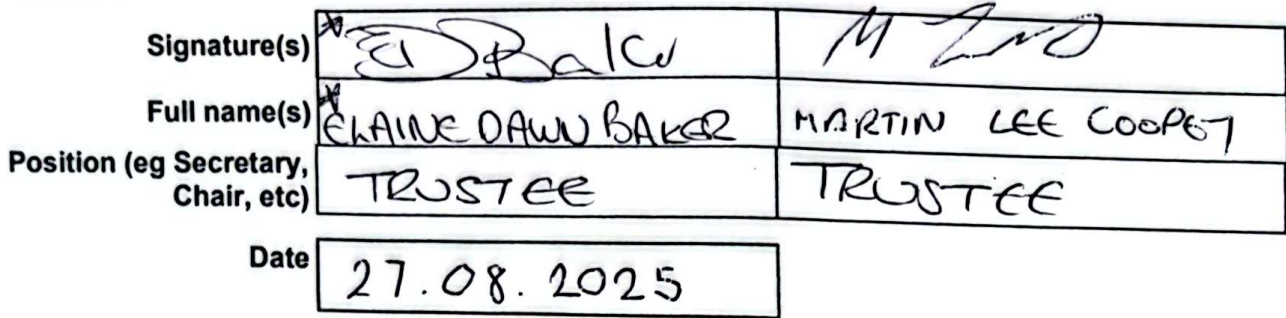 Signature(s) ED Baker
Full name(s) ELAINE DAWN BAKER MARTIN LEE
Position (eg Secretary,
Chair, etc) TRUSTEE TRUSTEE
Date 27.08.2025